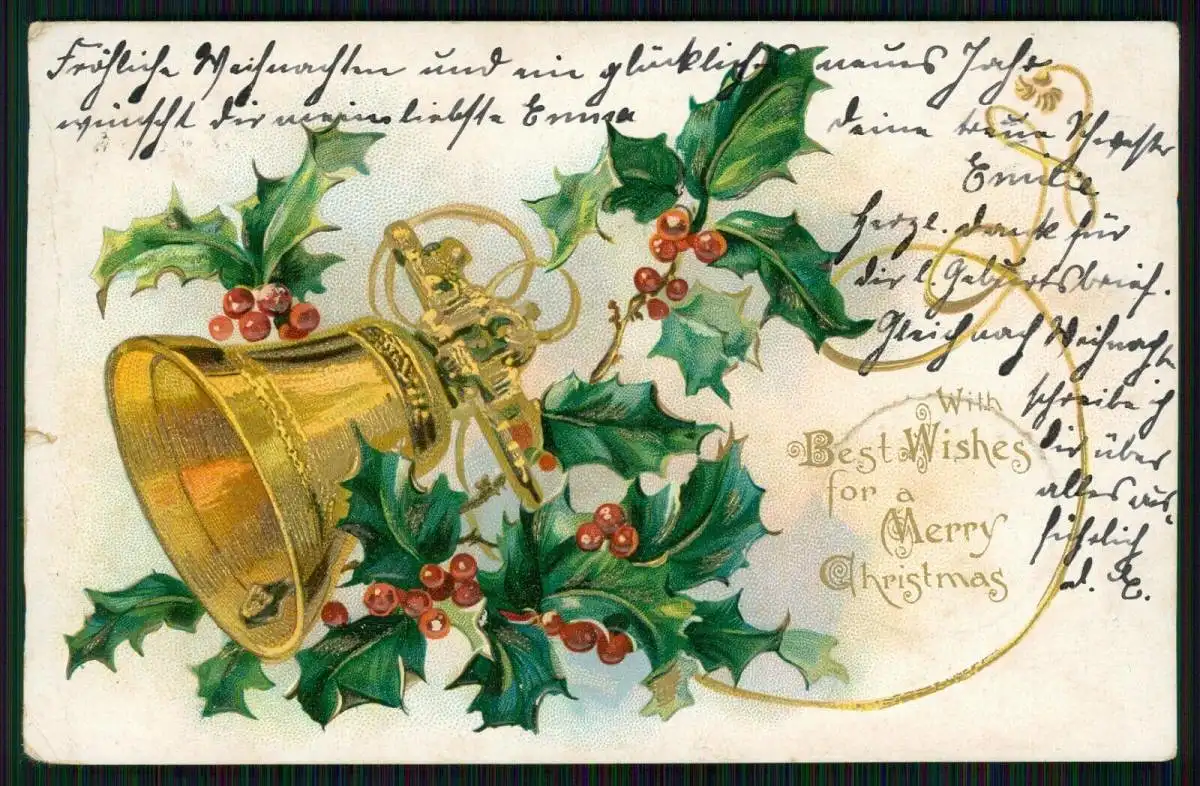 Fröhliche Weihnachten und ein glückliches neues Jahr
wünscht dir mein liebste Emma
deine treue Schwester
Emilie
Herzl. Dank für
die l. Geburtsbrief.
Gleich nach Weihnachten
schreibe ich
dir über
alles aus-
führlich
d. E.
With
Best Wishes
for a
Merry
Christmas